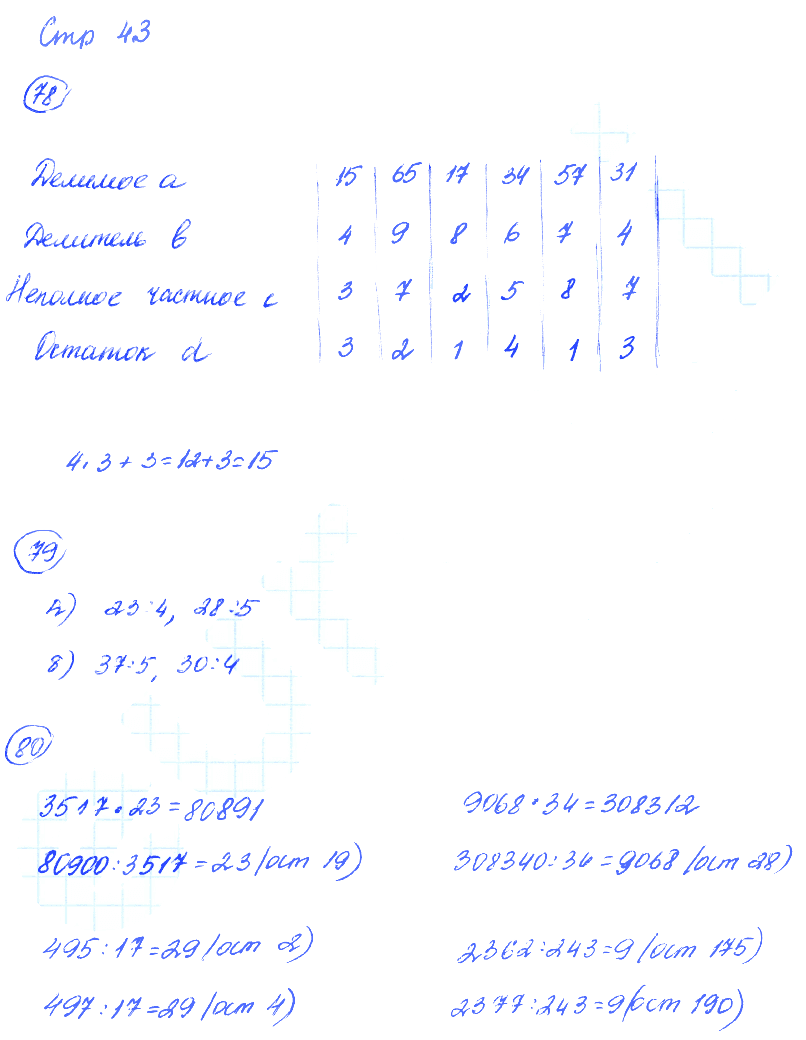 Стр 43
78
Делимое а 15 65 17 34 57 31
Делитель в 4 9 8 6 7 4
Неполное частное с 3 7 2 5 8 7
Остаток d 3 2 1 4 1 3
4 · 3 + 3 = 12 + 3 = 15
79
а) 23 : 4, 28 : 5
б) 37 : 5, 30 : 4
80
3517 · 23 = 80891
9068 · 34 = 308312
80900 : 3517 = 23 (ост 19)
308340 : 34 = 9068 (ост 28)
495 : 17 = 29 (ост 2)
2362 : 243 = 9 (ост 175)
497 : 17 = 29 (ост 4)
2377 : 243 = 9 (ост 190)